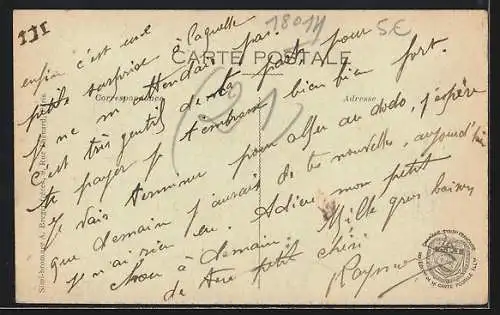 III
18014
5E
CARTE POSTALE
Correspondance
Adresse
(21)
enfin c'est une
petite surprise à laquelle
je ne m'attendais pas.
C'est très gentil de ta part pour
te payer je t'embrasse bien bien fort.
Je vais terminer pour aller au dodo, j'espère
que demain j'aurais de tes nouvelles, aujourd'hui
je n'ai rien eu. Adieu mon petit
chou à demain. Mille gros baisers
de ton petit chéri
Raymond
Simi-bromure A. Breger frères, Rue Paris